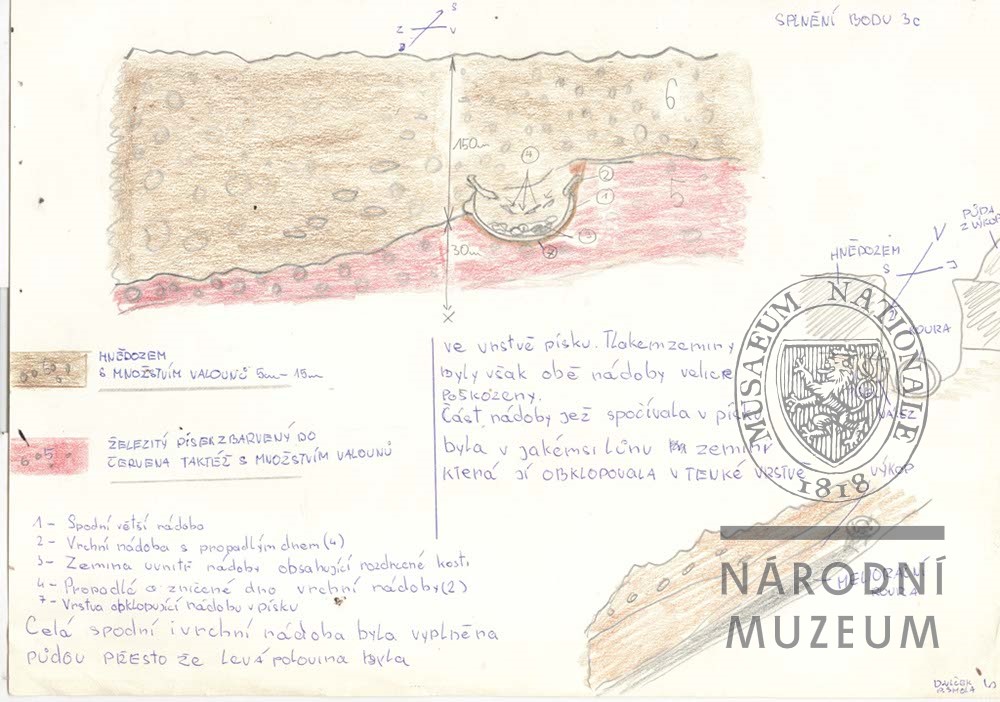 SPLNĚNÍ BODU 3c
S
Z V
J
6
150cm
4
5
2
1
3
7
30cm
PŮDA
HNĚDOZEM
V
S J
ROURA
HNĚDOZEM
S MNOŽSTVÍM VALOUNŮ 5cm - 15cm
5
ŽELEZITÝ PÍSEK ZBARVENÝ DO
ČERVENA TAKTÉŽ S MNOŽSTVÍM VALOUNŮ
6
ve vrstvě písku. Tlakem zeminy
byly však obě nádoby velice
poškozeny.
Část nádoby jež spočívala v písku
byla v jakémsi lůnu zeminy
která jí OBKLOPOVALA V TENKÉ VRSTVĚ
NÁLEZ
VÝKOP
1 - Spodní větší nádoba
2 - Vrchní nádoba s propadlým dnem (4)
3 - Zemina uvnitř nádoby obsahující rozdrcené kosti
4 - Propadlé a zničené dno vrchní nádoby (2)
7 - Vrstva obklopující nádobu v písku
Celá spodní i vrchní nádoba byla vyplněna
PŮDOU PŘESTO ŽE LEVÁ POLOVINA BYLA
MELIORAČNÍ
ROURA
MUSAEUM NATIONALE
1818
NÁRODNÍ
MUZEUM